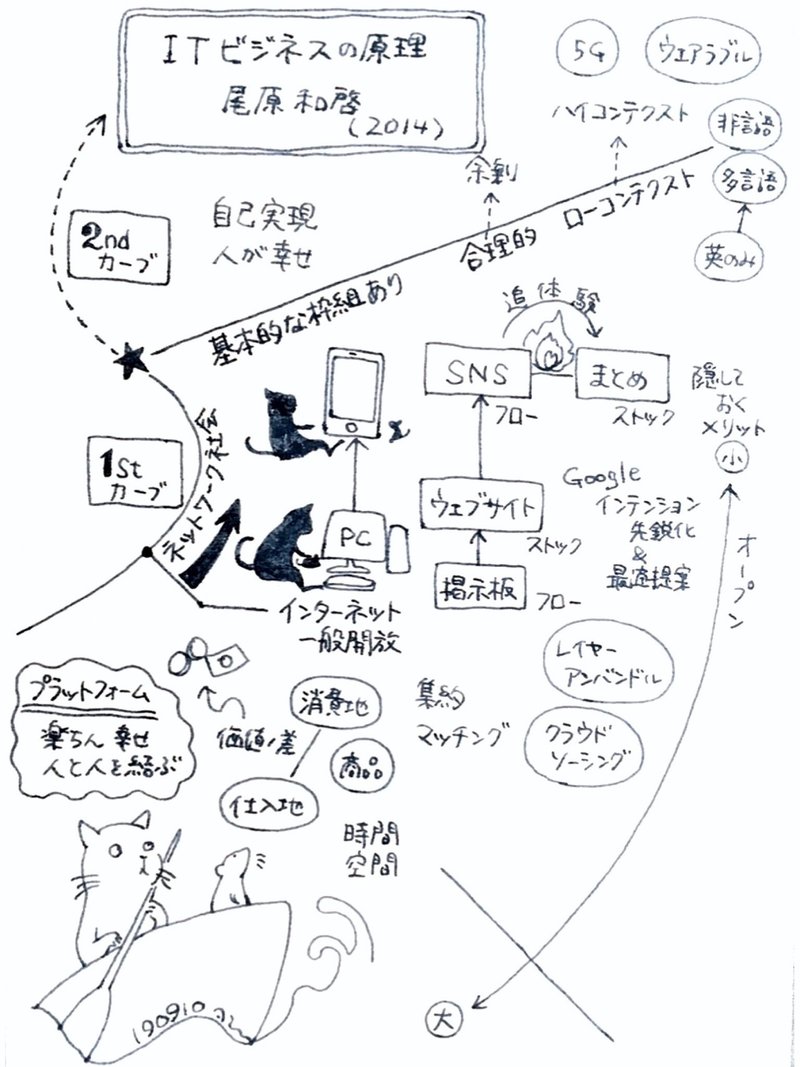 ITビジネスの原理
尾原和啓
(2014)
5G
ウエアラブル
ハイコンテクスト
非言語
多言語
英のみ
余剰
ローコンテクスト
合理的
基本的な枠組あり
2nd
カーブ
自己実現
人が幸せ
追体験
SNS
まとめ
フロー
ストック
隠して
おく
メリット
小
1st
カーブ
ネットワーク社会
PC
ウェブサイト
ストック
掲示板
フロー
Google
インテンション
先鋭化
&
最適提案
オープン
インターネット
一般開放
レイヤー
アンバンドル
クラウド
ソーシング
プラットフォーム
楽ちん 幸せ
人と人を結ぶ
価値ノ差
消費地
商品
仕入地
集約
マッチング
時間
空間
大
190910